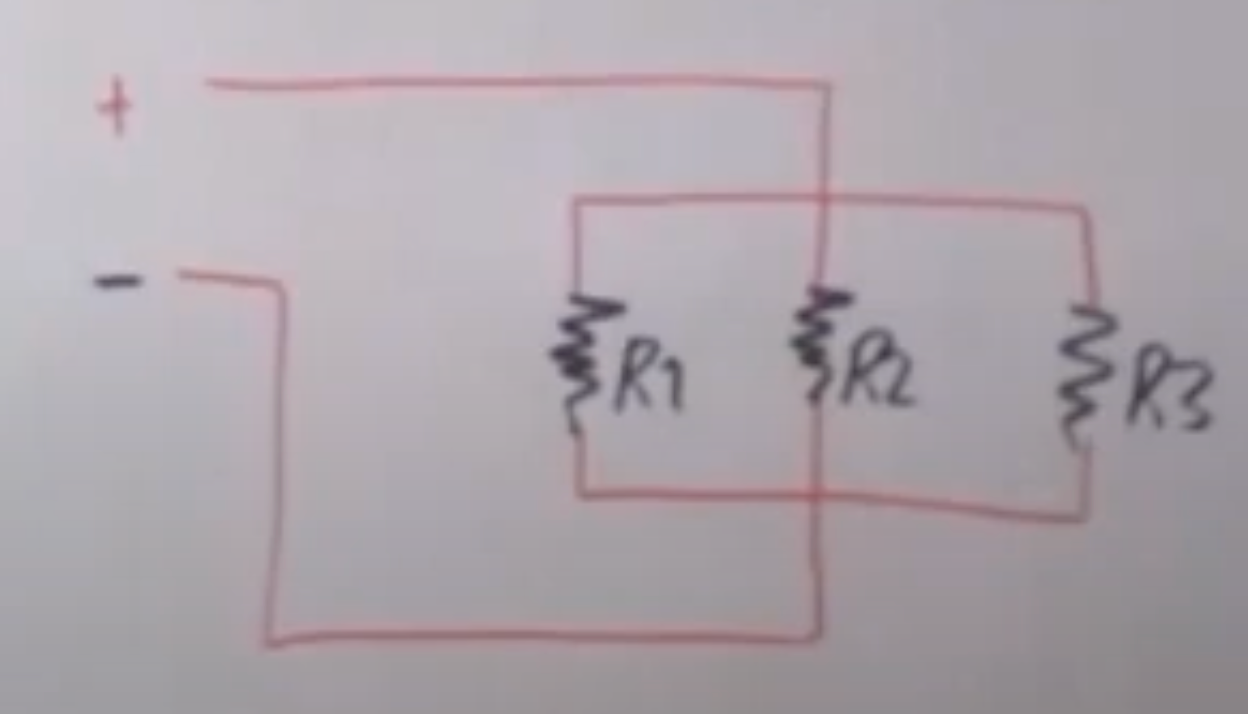 +
-
R1 R2 R3